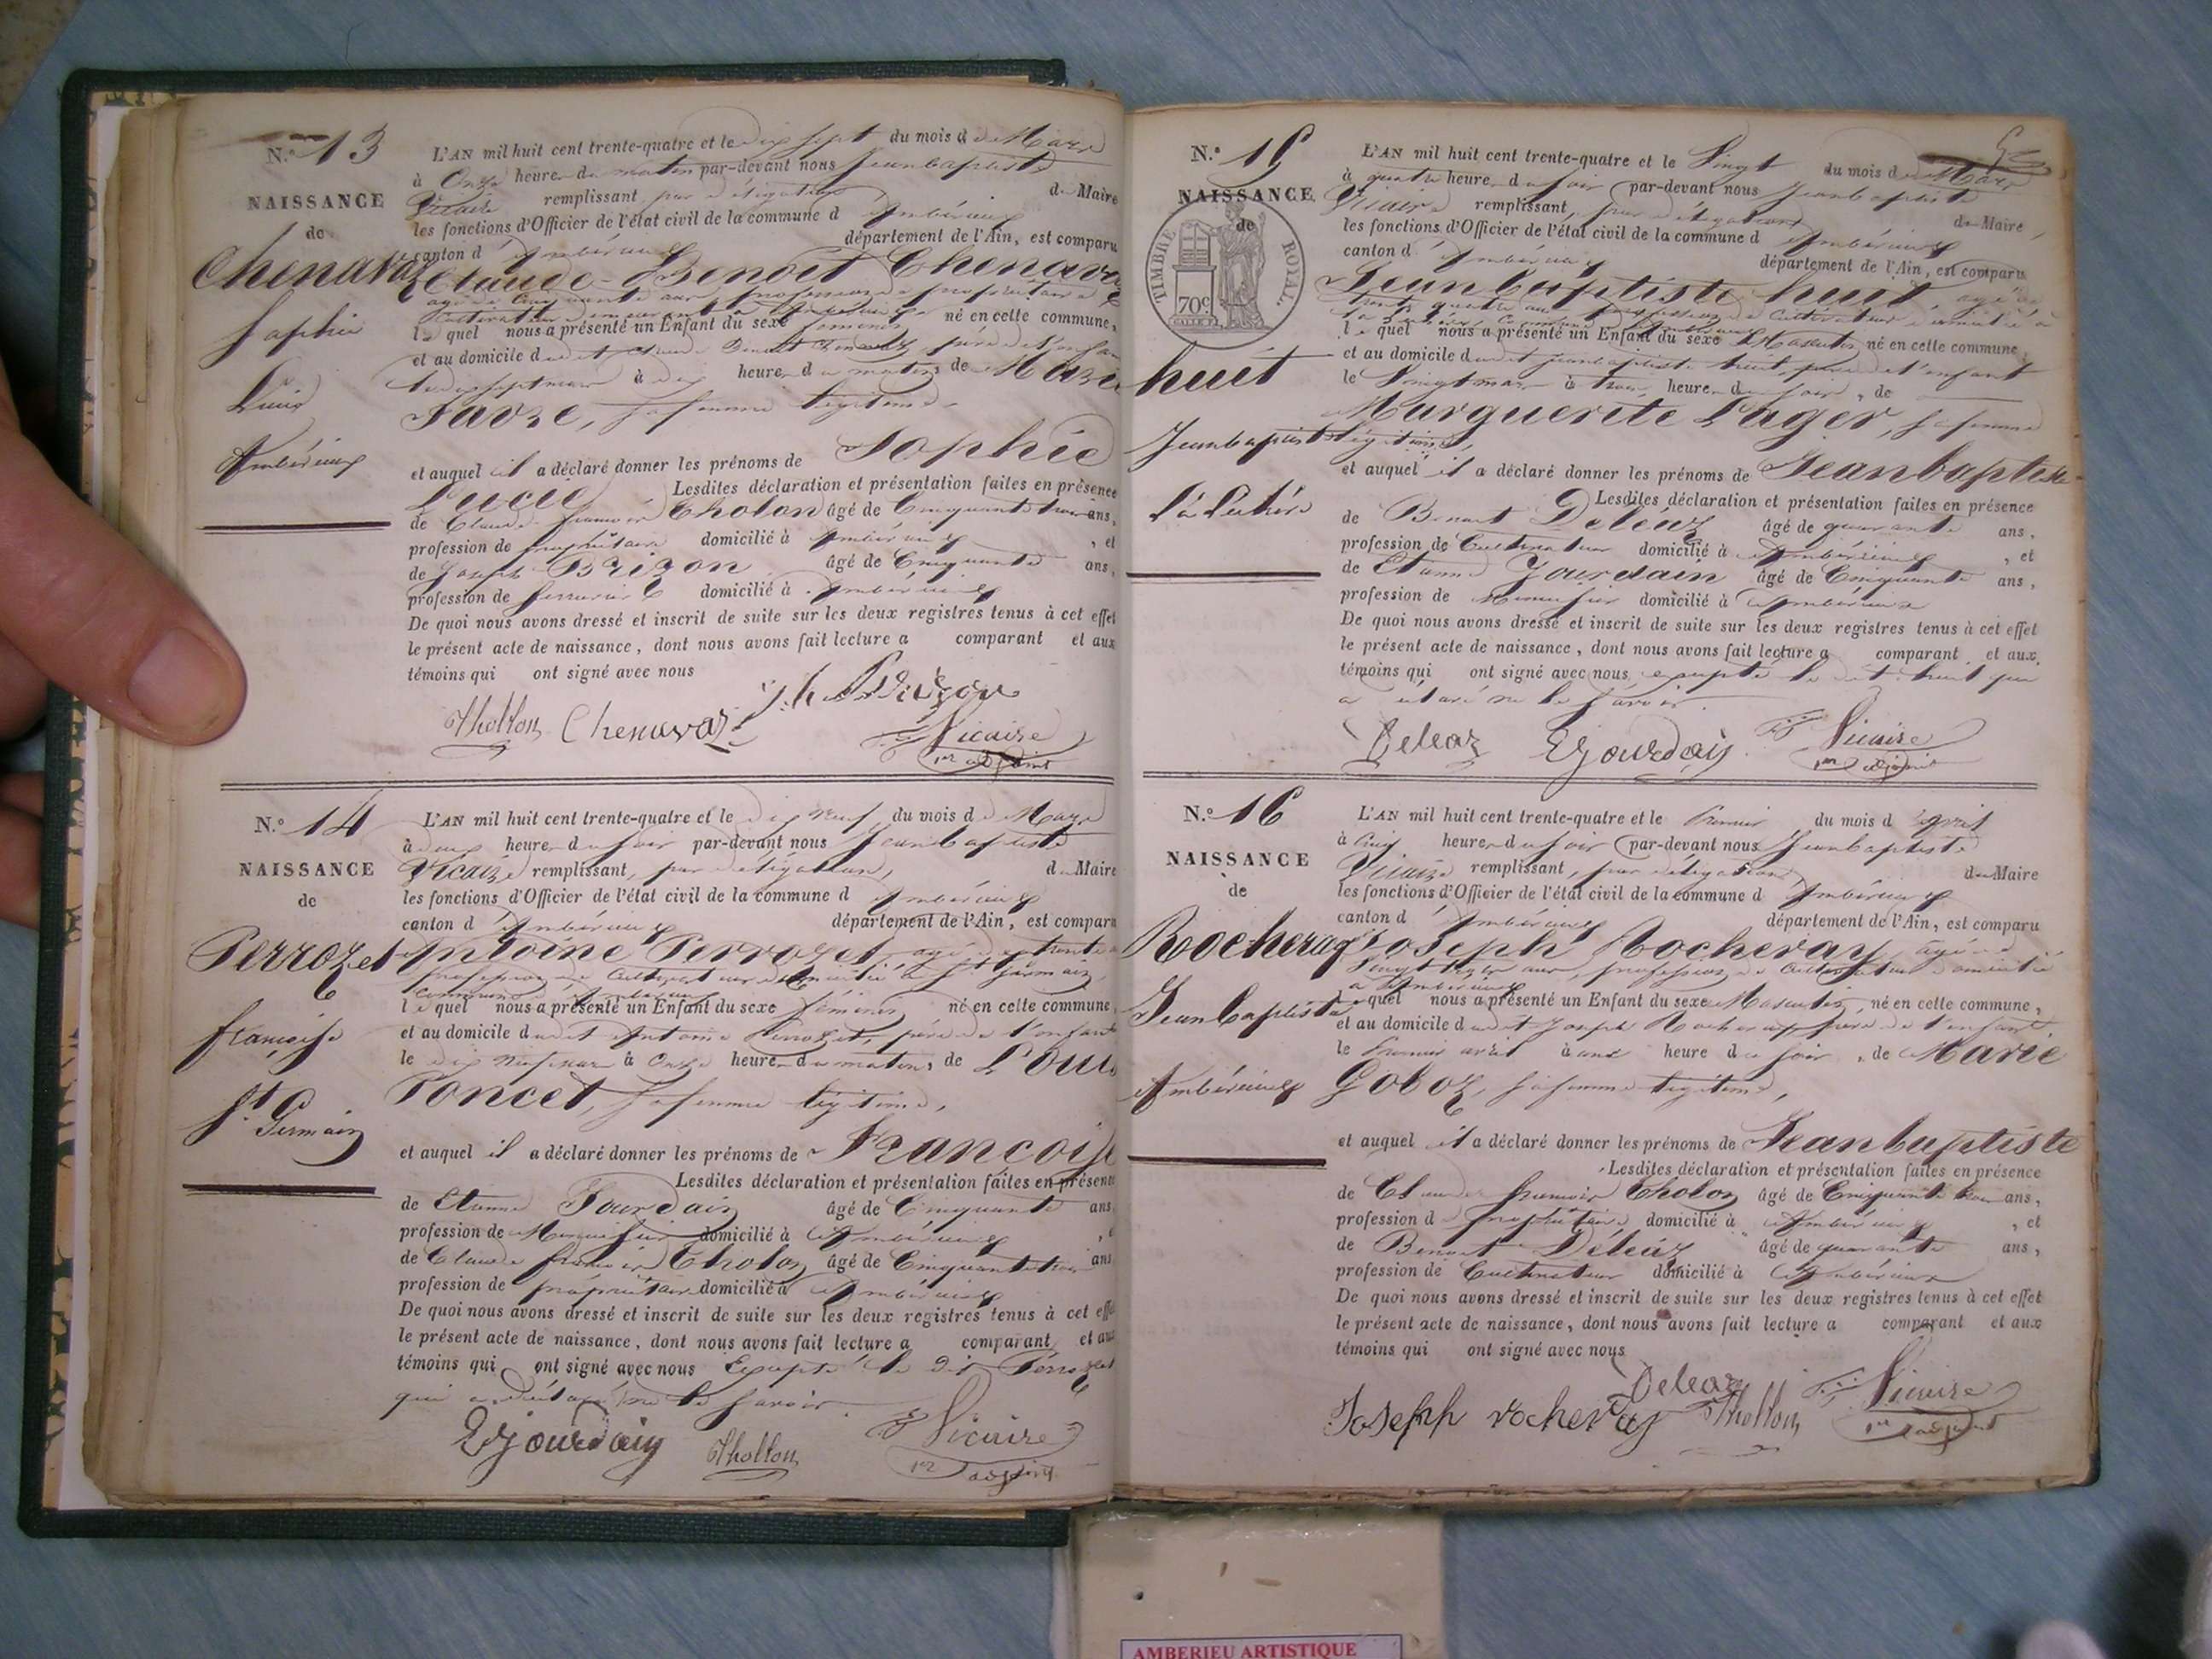 N.° 13
NAISSANCE
de
Chenavaz
Sophie
Lucie
Ambérieux
L'AN mil huit cent trente-quatre et le dix sept du mois d e Mars
à Onze heures du matin par-devant nous Jeanbaptiste
Vicaire remplissant par délégation du Maire
les fonctions d'Officier de l'état civil de la commune d'Ambérieux
canton d'Ambérieux département de l'Ain, est comparu
Claude-Benoit Chenavaz
agé de Cinquante ans profession de propriétaire
Cultivateur demeurant à Ambérieux
lequel nous a présenté un Enfant du sexe féminin né en cette commune,
et au domicile dudit Claude Benoit Chenavaz, père de l'enfant
le dix sept mars à dix heures du matin, de Marie
Favre, sa femme légitime,
et auquel il a déclaré donner les prénoms de Sophie
Lucie Lesdites déclaration et présentation faites en présence
de Claude françois Tholon âgé de Cinquante trois ans,
profession de propriétaire domicilié à Ambérieux, et
de Joseph Brizon âgé de Cinquante ans,
profession de serrurier domicilié à Ambérieux
De quoi nous avons dressé et inscrit de suite sur les deux registres tenus à cet effet
le présent acte de naissance, dont nous avons fait lecture a comparant et aux
témoins qui ont signé avec nous
Thollon Chenavaz Jh Brizon
Vicaire
1er adjoint
N.° 14
NAISSANCE
de
Perrozet
françoise
St Germain
L'AN mil huit cent trente-quatre et le dix neuf du mois de Mars
à deux heures du soir par-devant nous Jeanbaptiste
Vicaire remplissant, par délégation, du Maire
les fonctions d'Officier de l'état civil de la commune d'Ambérieux
canton d'Ambérieux département de l'Ain, est comparu
Antoine Perrozet, agé de trente
profession de Cultivateur domicilié à St Germain
commune d'Ambérieux
lequel nous a présenté un Enfant du sexe féminin né en cette commune,
et au domicile dudit Antoine Perrozet, père de l'enfant
le dix neuf mars à Onze heures du matin, de Louise
Poncet, sa femme légitime,
et auquel il a déclaré donner les prénoms de Françoise
Lesdites déclaration et présentation faites en présence
de Etienne Jourdain âgé de Cinquante ans
profession de Menuisier domicilié à Ambérieux
de Claude françois Tholon âgé de Cinquante trois ans
profession de propriétaire domicilié à Ambérieux
De quoi nous avons dressé et inscrit de suite sur les deux registres tenus à cet effet
le présent acte de naissance, dont nous avons fait lecture a comparant et aux
témoins qui ont signé avec nous Excepté le dit Perrozet
qui a déclaré ne le savoir.
Ejourdain Thollon Vicaire
1er adjoint
N.° 15
NAISSANCE
de
TIMBRE ROYAL
70c.
huit
Jeanbaptiste
L'AN mil huit cent trente-quatre et le Vingt du mois de Mars
à quatre heures du soir par-devant nous Jeanbaptiste
Vicaire remplissant, par délégation du Maire
les fonctions d'Officier de l'état civil de la commune d'Ambérieux
canton d'Ambérieux département de l'Ain, est comparu
Jeanbaptiste huit, agé de
trente quatre ans profession de Cultivateur domicilié à
commune d'Ambérieux
lequel nous a présenté un Enfant du sexe Masculin né en cette commune,
et au domicile dudit Jeanbaptiste huit, père de l'enfant
le Vingt mars à trois heures du soir, de
Marguerite Lager, sa femme
légitime,
et auquel il a déclaré donner les prénoms de Jeanbaptiste
Lesdites déclaration et présentation faites en présence
de Benoit Deleaz âgé de quarante ans,
profession de Cultivateur domicilié à Ambérieux, et
de Etienne Jourdain âgé de Cinquante ans,
profession de Menuisier domicilié à Ambérieux
De quoi nous avons dressé et inscrit de suite sur les deux registres tenus à cet effet
le présent acte de naissance, dont nous avons fait lecture a comparant et aux
témoins qui ont signé avec nous, excepté le dit huit qui
a déclaré ne le savoir.
Deleaz Ejourdain Vicaire
1er adjoint
N.° 16
NAISSANCE
de
Rocheray
Jeanbaptiste
Ambérieux
L'AN mil huit cent trente-quatre et le Premier du mois d'avril
à Cinq heures du soir par-devant nous Jeanbaptiste
Vicaire remplissant, par délégation du Maire
les fonctions d'Officier de l'état civil de la commune d'Ambérieux
canton d'Ambérieux département de l'Ain, est comparu
Joseph Rocheray agé de
ans, profession de Cultivateur domicilié
à Ambérieux
lequel nous a présenté un Enfant du sexe Masculin, né en cette commune,
et au domicile dudit Joseph Rocheray père de l'enfant
le Premier avril à une heure du soir, de Marie
Goboz, sa femme légitime,
et auquel il a déclaré donner les prénoms de Jeanbaptiste
Lesdites déclaration et présentation faites en présence
de Claude françois Tholon âgé de Cinquante trois ans,
profession de propriétaire domicilié à Ambérieux, et
de Benoit Deleaz âgé de quarante ans,
profession de Cultivateur domicilié à Ambérieux
De quoi nous avons dressé et inscrit de suite sur les deux registres tenus à cet effet
le présent acte de naissance, dont nous avons fait lecture a comparant et aux
témoins qui ont signé avec nous
Deleaz
Joseph rocheray Thollon Vicaire
1er adjoint
AMBERIEU ARTISTIQUE